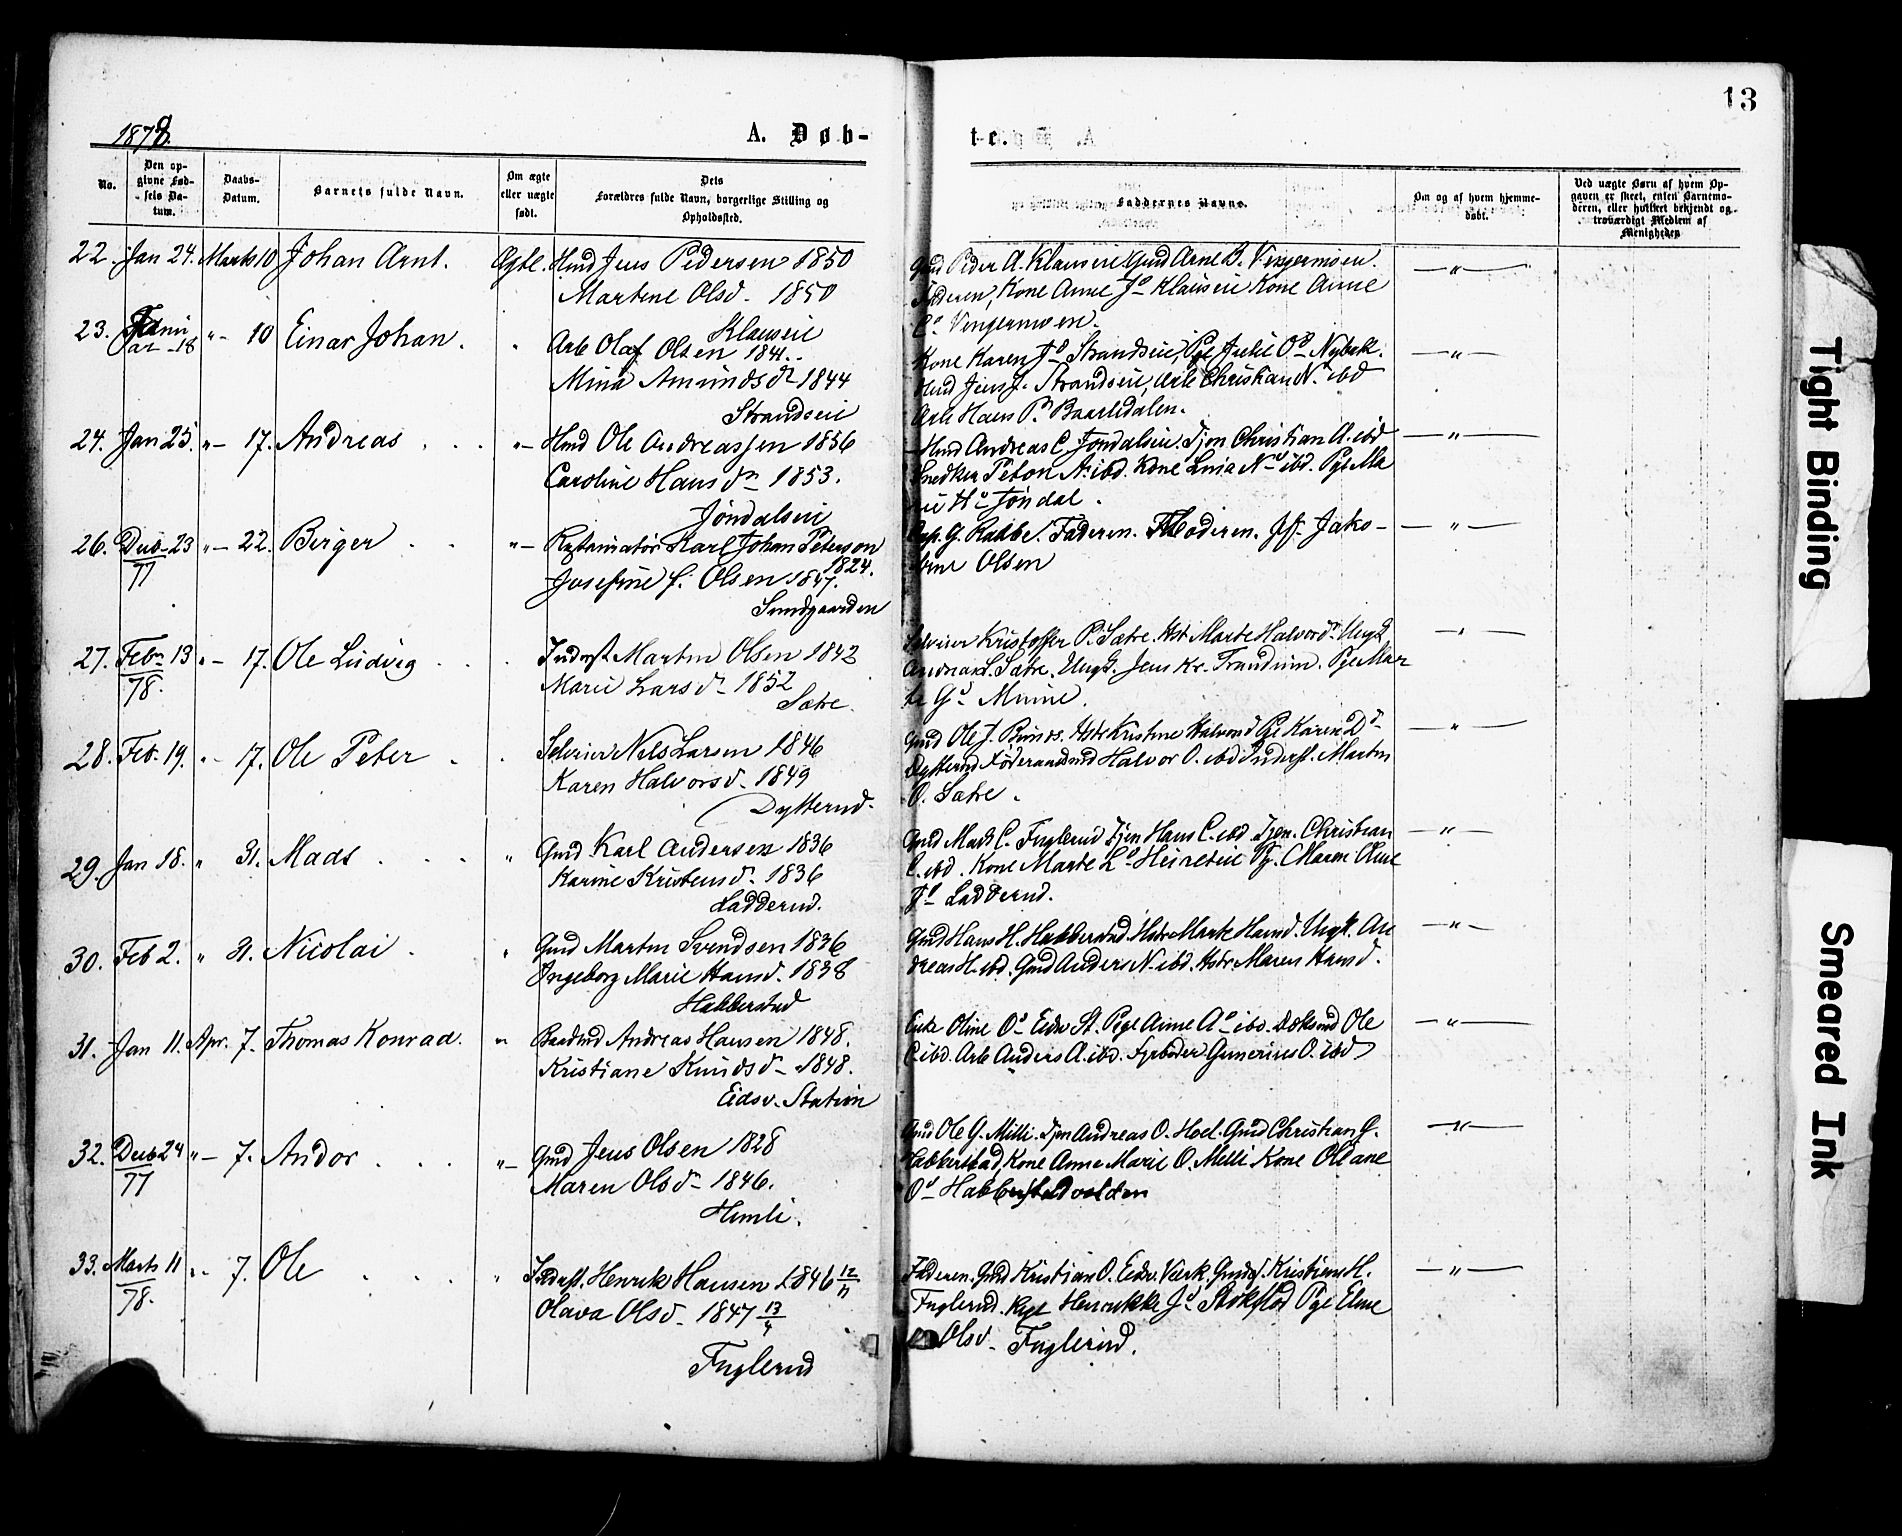 13
1878.
A. Døb-
te.
No.
Den op-
givne Fød-
sels Da-
tum.
Daabs-
Datum.
Barnets fulde Navn.
Om ægte
eller uægte
født.
Dets
Forældres fulde Navn, borgerlige Stilling og
Opholdssted.
Faddernes Navne.
Om og af hvem hjemme-
døbt.
Ved uægte Børn af hvem Op-
gaven er skeet, enten Barnemo-
deren, eller hvilket bekjendt og
troværdigt Medlem af
Menigheden
22. Jan 24. Marts 10 Johan Arnt. Ægte. Hmd Jens Pedersen 1850
Martene Olsd. 1850
Klauseie
Gmd Peder A. Klauseie Gmd Arne B. Vengermoen.
Faderen, Kone Anne Jd Klauseie Kone Anne
Vengermoen.
23. Janu
ar 18 "- 10 Einar Johan. Arb Olaf Olsen 1841.
Mina Amundsdr 1844
Strandseie
Kone Karen Strandseie, Pge Julie Od Nybakk.
Hmd Jens J. Strandseie, Arb Christian N. ibd
Arb Hans P. Baarlidalen.
24. Jan 25. "- 17. Andreas "- Hmd Ole Andreassen 1856
Caroline Hansdr 1853.
Jøndalseie
Hmd Andreas C. Jøndalseie. Tjen Christian A. ibd
Snedker Peton A. ibd. Kone Lina Nd ibd. Pge Ma
rie Hd Jøndal.
26. Decb 23
77 "- 22. Birger "- Karl Johan Peterson
1824.
Josefine f. Olsen 1847.
Sundgaarden
G. Rabbe. Faderen. Moderen. Jfr. Jako-
bine Olsen
27. Febr 13
78. "- 17. Ole Ludvig Inderst Martin Olsen 1842
Marie Larsd. 1852
Satre.
Selveier Kristoffer P. Sætre. Hstr Marte Halvordr Ungk.
Andreas L. Satre. Ungk. Jens Kr. Trandum. Pge Mar
te Gd Minne.
28. Feb. 19. "- 17. Ole Peter Selveier Nels Larsen 1846
Karen Halvorsd. 1849
Dytterud.
Gmd Ole J. Hstr Kristine Halvord Pge Karen Dd
Dytterud Føderaadsmd Halvor O. ibd Inderst. Martin
O. Satre.
29. Jan 18. " 31. Mads " Gmd Karl Andersen 1836
Karine Kristensd. 1836
Ladderud.
Gmd Mads C. Fuglerud Tjen Hans C. ibd. Tjen. Christian
C. ibd. Kone Marte Ld Pg. Maren Oline
Jd Ladderud.
30. Feb 2. " 31. Nicolai " Gmd Martin Svendsen 1836
Ingeborg Marie Hansd. 1838
Habberstad
Gmd Hans H. Habberstad. Hstr Marte Hansd. Ungk. An
dreas H. ibd. Gmd Anders N. ibd. Hstr Maren Hansd.
31. Jan 11. Apr. 7. Thomas Konrad. " Andreas Hansen 1848.
Kristiane Knudsd. 1848.
Eidsv. Station
Enke Oline Od Eidsv St. Pige Anne Ad ibd. Ole
C. ibd. Arb Anders A. ibd. Fyrbøder Gunerius O. ibd
32. Decb 24
77 "- 7. Andor "- Gmd Jens Olsen 1828
Maren Olsd. 1846.
Himli.
Gmd Ole G. Milli. Tjen Andreas O. Hoel. Gmd Christian G.
Habberstad, Kone Anne Marie O. Melli Kone Oleane
Od Habberstadvolden
33. Marts 11
78. "- 7. Ole " Inderst. Henrik Hansen 1846 12/11
Olava Olsd. 1847 13/4
Fuglerud
Faderen. Gmd Kristian O. Eidsv. Værk. Kristian H.
Fuglerud. Pige Henrikke Jd Pge Eline
Olsd. Fuglerud.
Tight Binding
Smeared Ink